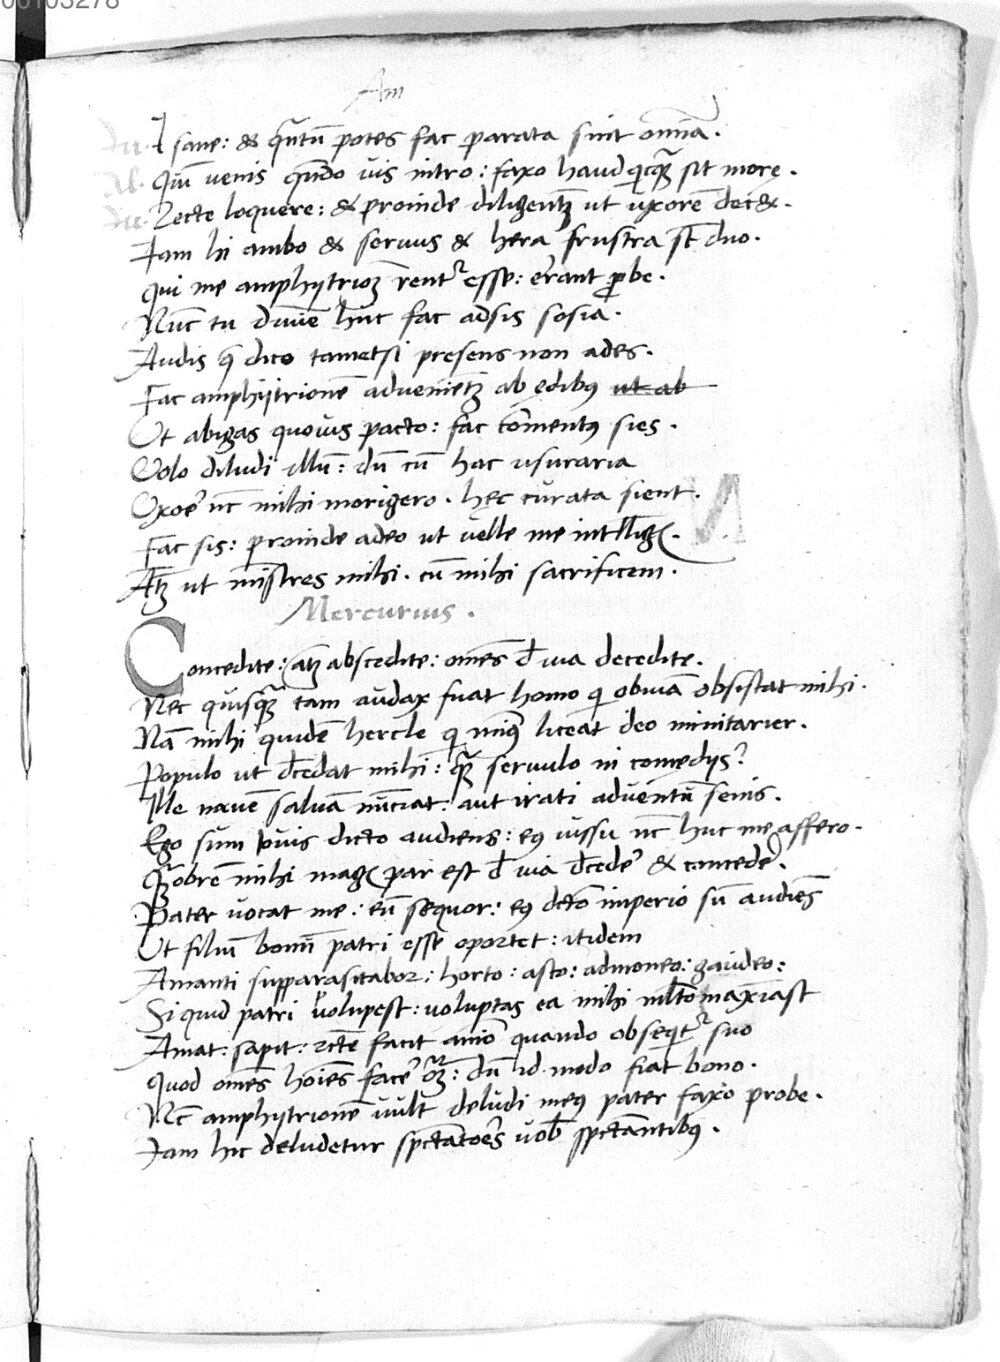 00103278
Am
Iu. I sane: & q̃ntũ potes fac parata sint om̃ia.
Al. Qiñ venis quãdo vis intro: faxo haud q̃cq̃ȝ sit more.
Iu. Recte loquere: & proinde diligentẽ ut uxorẽ dec&.
Iam hi ambo & seruus & hera frustra st̃ duo.
Qui me amphytrionẽ rent᷑ esse: errant ꝓbe.
Nũc tu diuine huc fac adsis sosia.
Audis q̃ dico tametsi presens non ades.
Fac amphytrionẽ aduenientẽ ab ędibꝰ ut ab
Ut abigas quouis pacto: fac cõmentꝰ sies.
Uolo diludi illũ: dũ cũ hac usuraria
Uxoẽ nc̃ mihi morigero. hęc curata sient.
Fac sis: proinde adeo ut uelle me intellig̃.
Atqȝ ut ministres mihi. cũ mihi sacrificem.
Mercurius.
Concedite: atqȝ abscedite: omẽs d̃ uia decedite.
Nec quisq̃ȝ tam audax fuat homo qi obuiã obsistat mihi.
Nã mihi quidẽ hercle qi minꝰ liceat deo minitarier.
Populo ut d̃cedat mihi: q̃ȝ seruulo in comędijs?
Ille nauẽ saluã nũciat: aut irati aduentũ senis.
Ego sum Iouis dicto audiens: eꝰ iussu nc̃ huc me affero.
Quãobrẽ mihi mag̃ par est d̃ uia d̃ceder̃ & conceder̃.
Pater uocat me: eũ sequor: eꝰ dcto imperio sũ audiẽs
Ut filiũ bonũ patri esse oportet: itidem
Amanti supparasitabor: horto: asto: admoneo: gaudeo:
Si quid patri volupest: uoluptas ea mihi mlto maximast
Amat: sapit: rctẽ facit aĩo quando obseqt᷑ suo
Quod omẽs hoĩes facẽ oȝ: dũ id modo fiat bono.
Nc̃ amphytrionẽ uult deludi meꝰ pater faxo probe.
Iam hic deludetur spctatoẽs uob̃ spctantibꝰ.